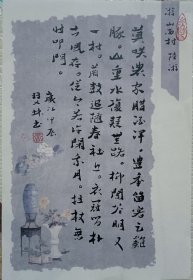 游山西村 陆游
莫咲農家腊酒浑豐年留客足雞
豚山重水複疑無路柳闇花明又
一村蕭鼓追随春社近衣冠簡朴
古風存從今若許閒乘月拄杖無
時叩門
歲次甲辰